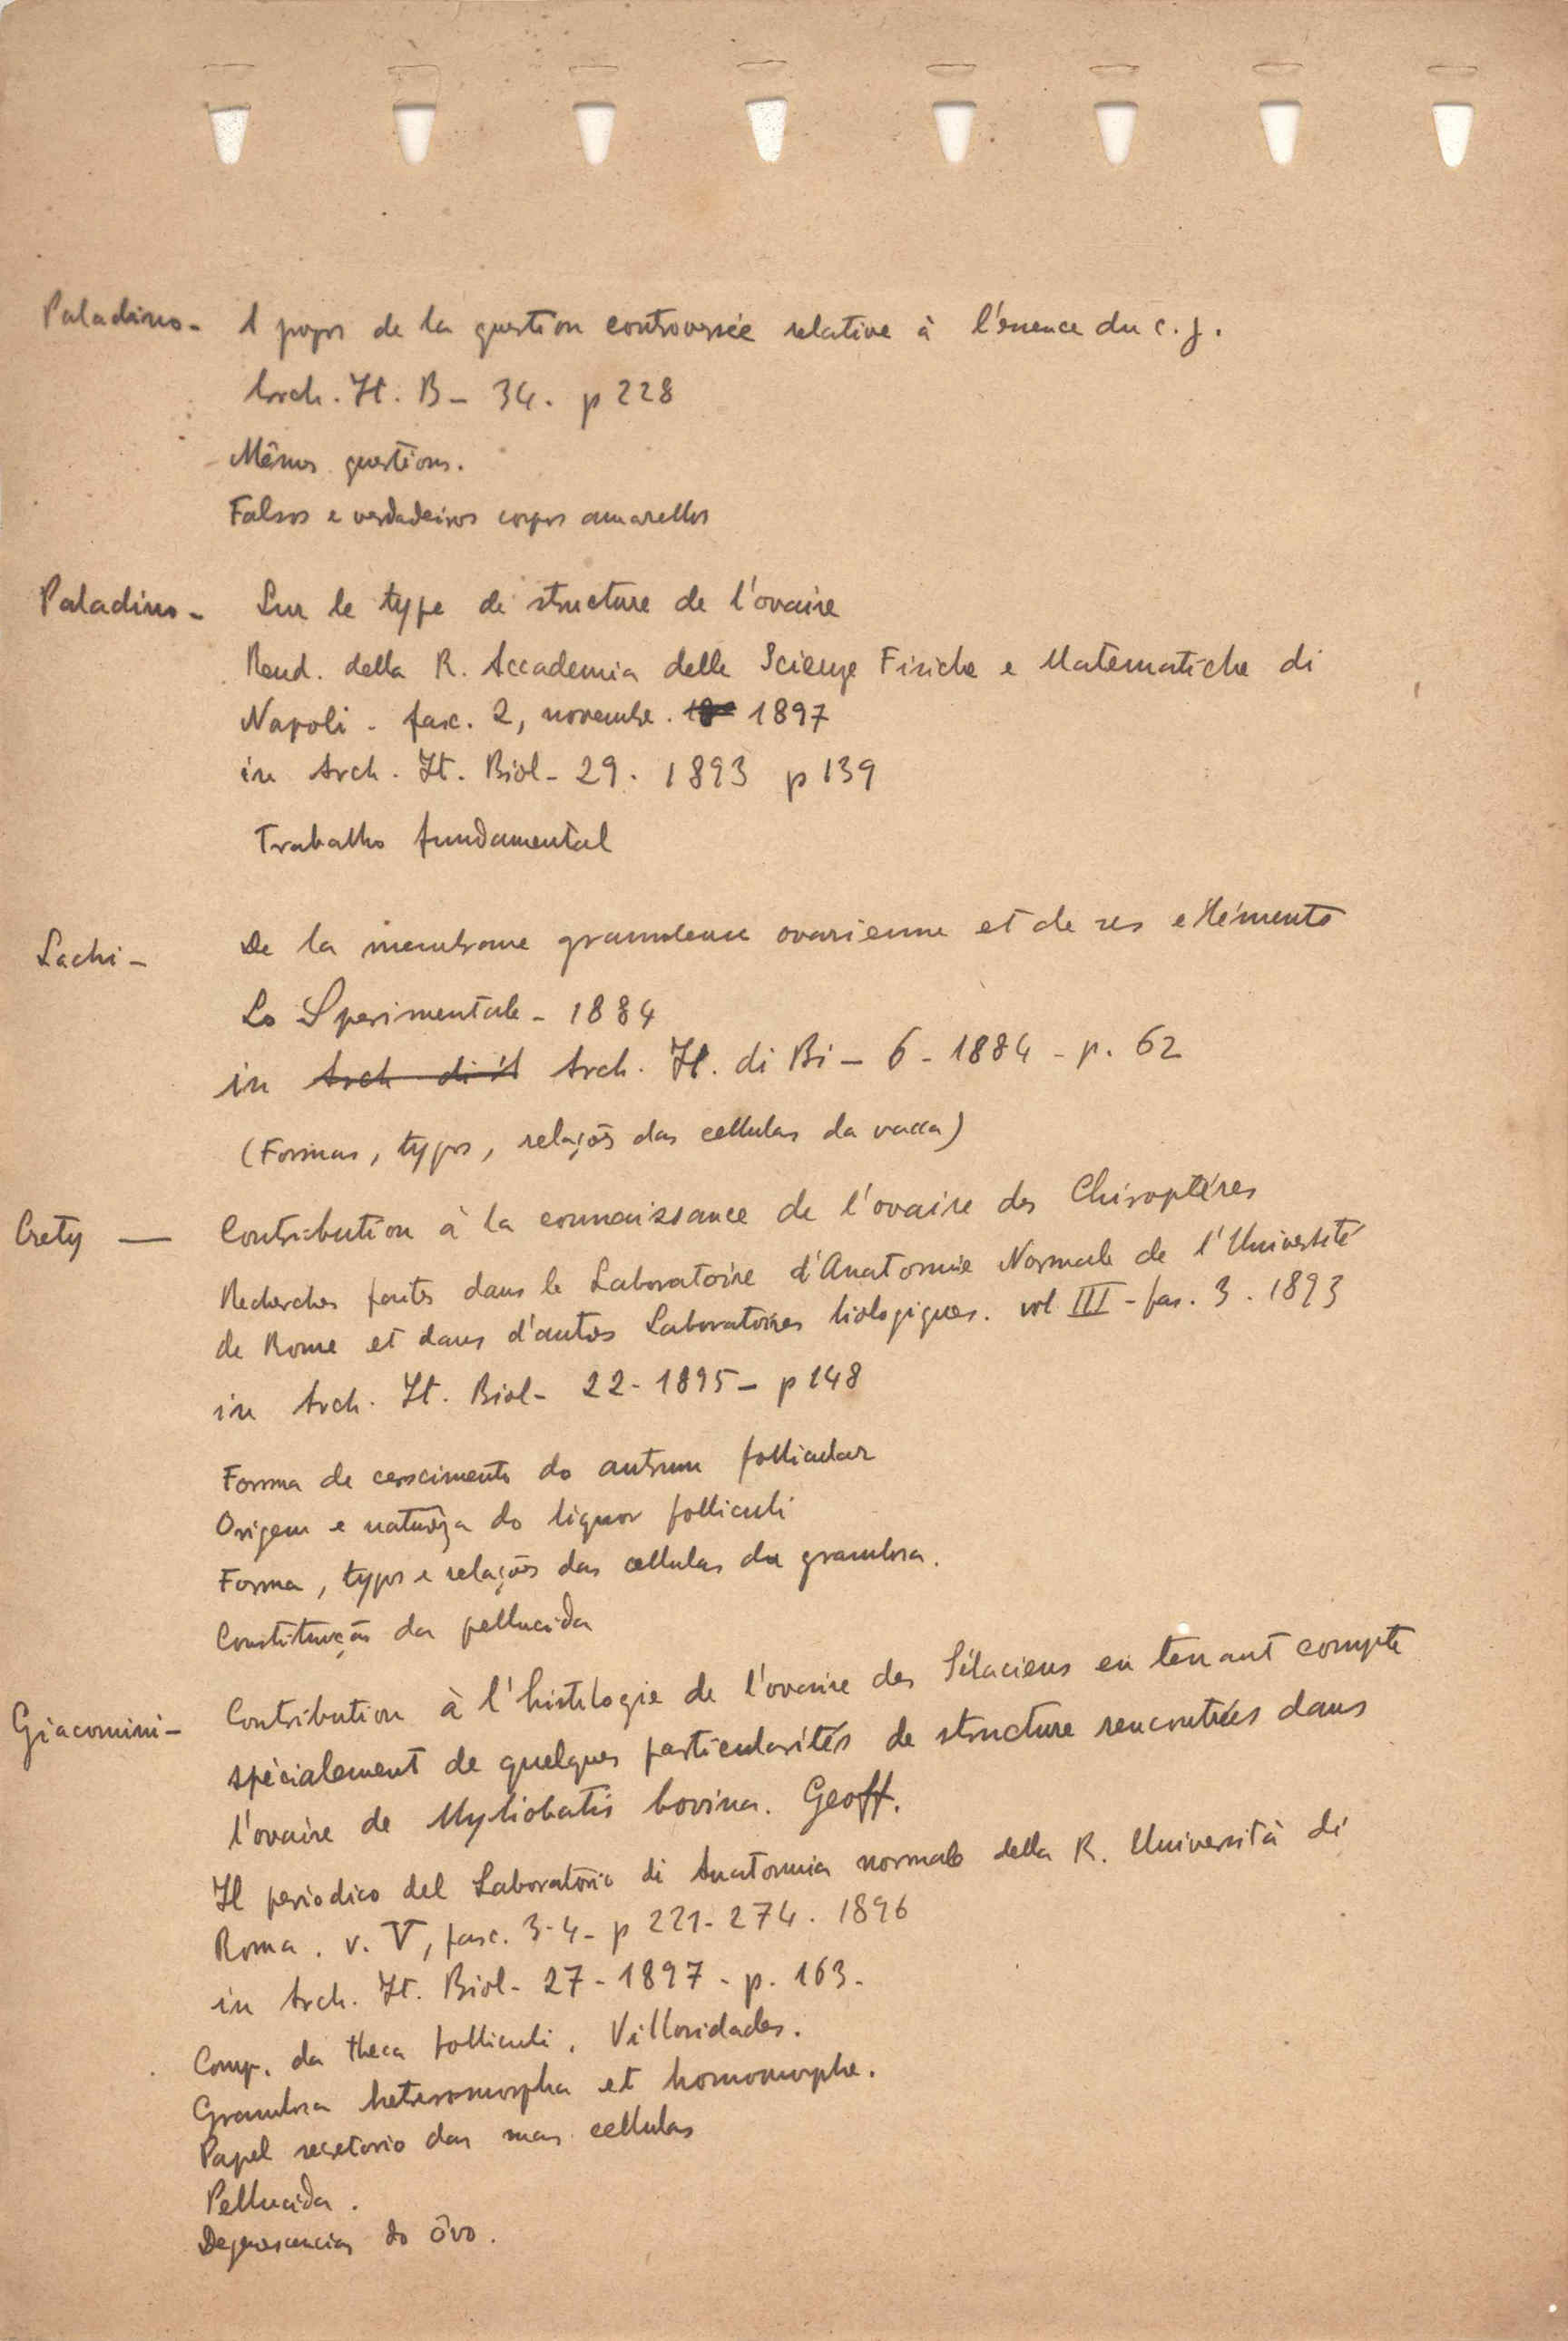 Paladino - A propos de la question controversée relative à l'essence du c. j.
Arch. It. B - 34. p 228
Mêmes questions.
Falsos e verdadeiros corpos amarellos
Paladino - Sur le type de structure de l'ovaire
Rend. della R. Accademia delle Scienze Fisiche e Matematiche di
Napoli - fasc. 2, novembre. 18 1897
in Arch. It. Biol - 29. 1893 p 139
Trabalho fundamental
Lachi - De la membrane granuleuse ovarienne et de ses elléments
Lo Sperimentale - 1884
in Arch di it Arch. It. di Bi - 6 - 1884 - p. 62
(Formas, typos, relações das cellulas da vacca)
Crety — Contribution à la connaissance de l'ovaire des Chiroptères
Recherches faites dans le Laboratoire d'Anatomie Normale de l'Université
de Rome et dans d'autres Laboratoires biologiques. vol III - fas. 3. 1893
in Arch. It. Biol - 22 - 1895 - p 148
Forma de crescimento do antrum follicular
Origem e natureza do liquor folliculi
Forma, typos e relações das cellulas da granulosa.
Constituição da pellucida
Giacomini - Contribution à l'histologie de l'ovaire des Sélaciens en tenant compte
spécialement de quelques particularités de structure rencontrées dans
l'ovaire de Myliobatis bovina. Geoff.
Il periodico del Laboratorio di Anatomia normale della R. Università di
Roma. v. V, fasc. 3-4 - p 221-274. 1896
in Arch. It. Biol - 27 - 1897 - p. 163.
Comp. da theca folliculi. Villosidades.
Granulosa heteromorpha et homomorphe.
Papel secretorio das suas cellulas
Pellucida.
Degenerescencias do ôvo.